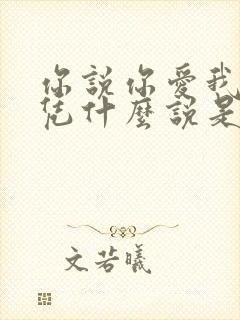 你說你愛我
凭什麼說是
文若曦